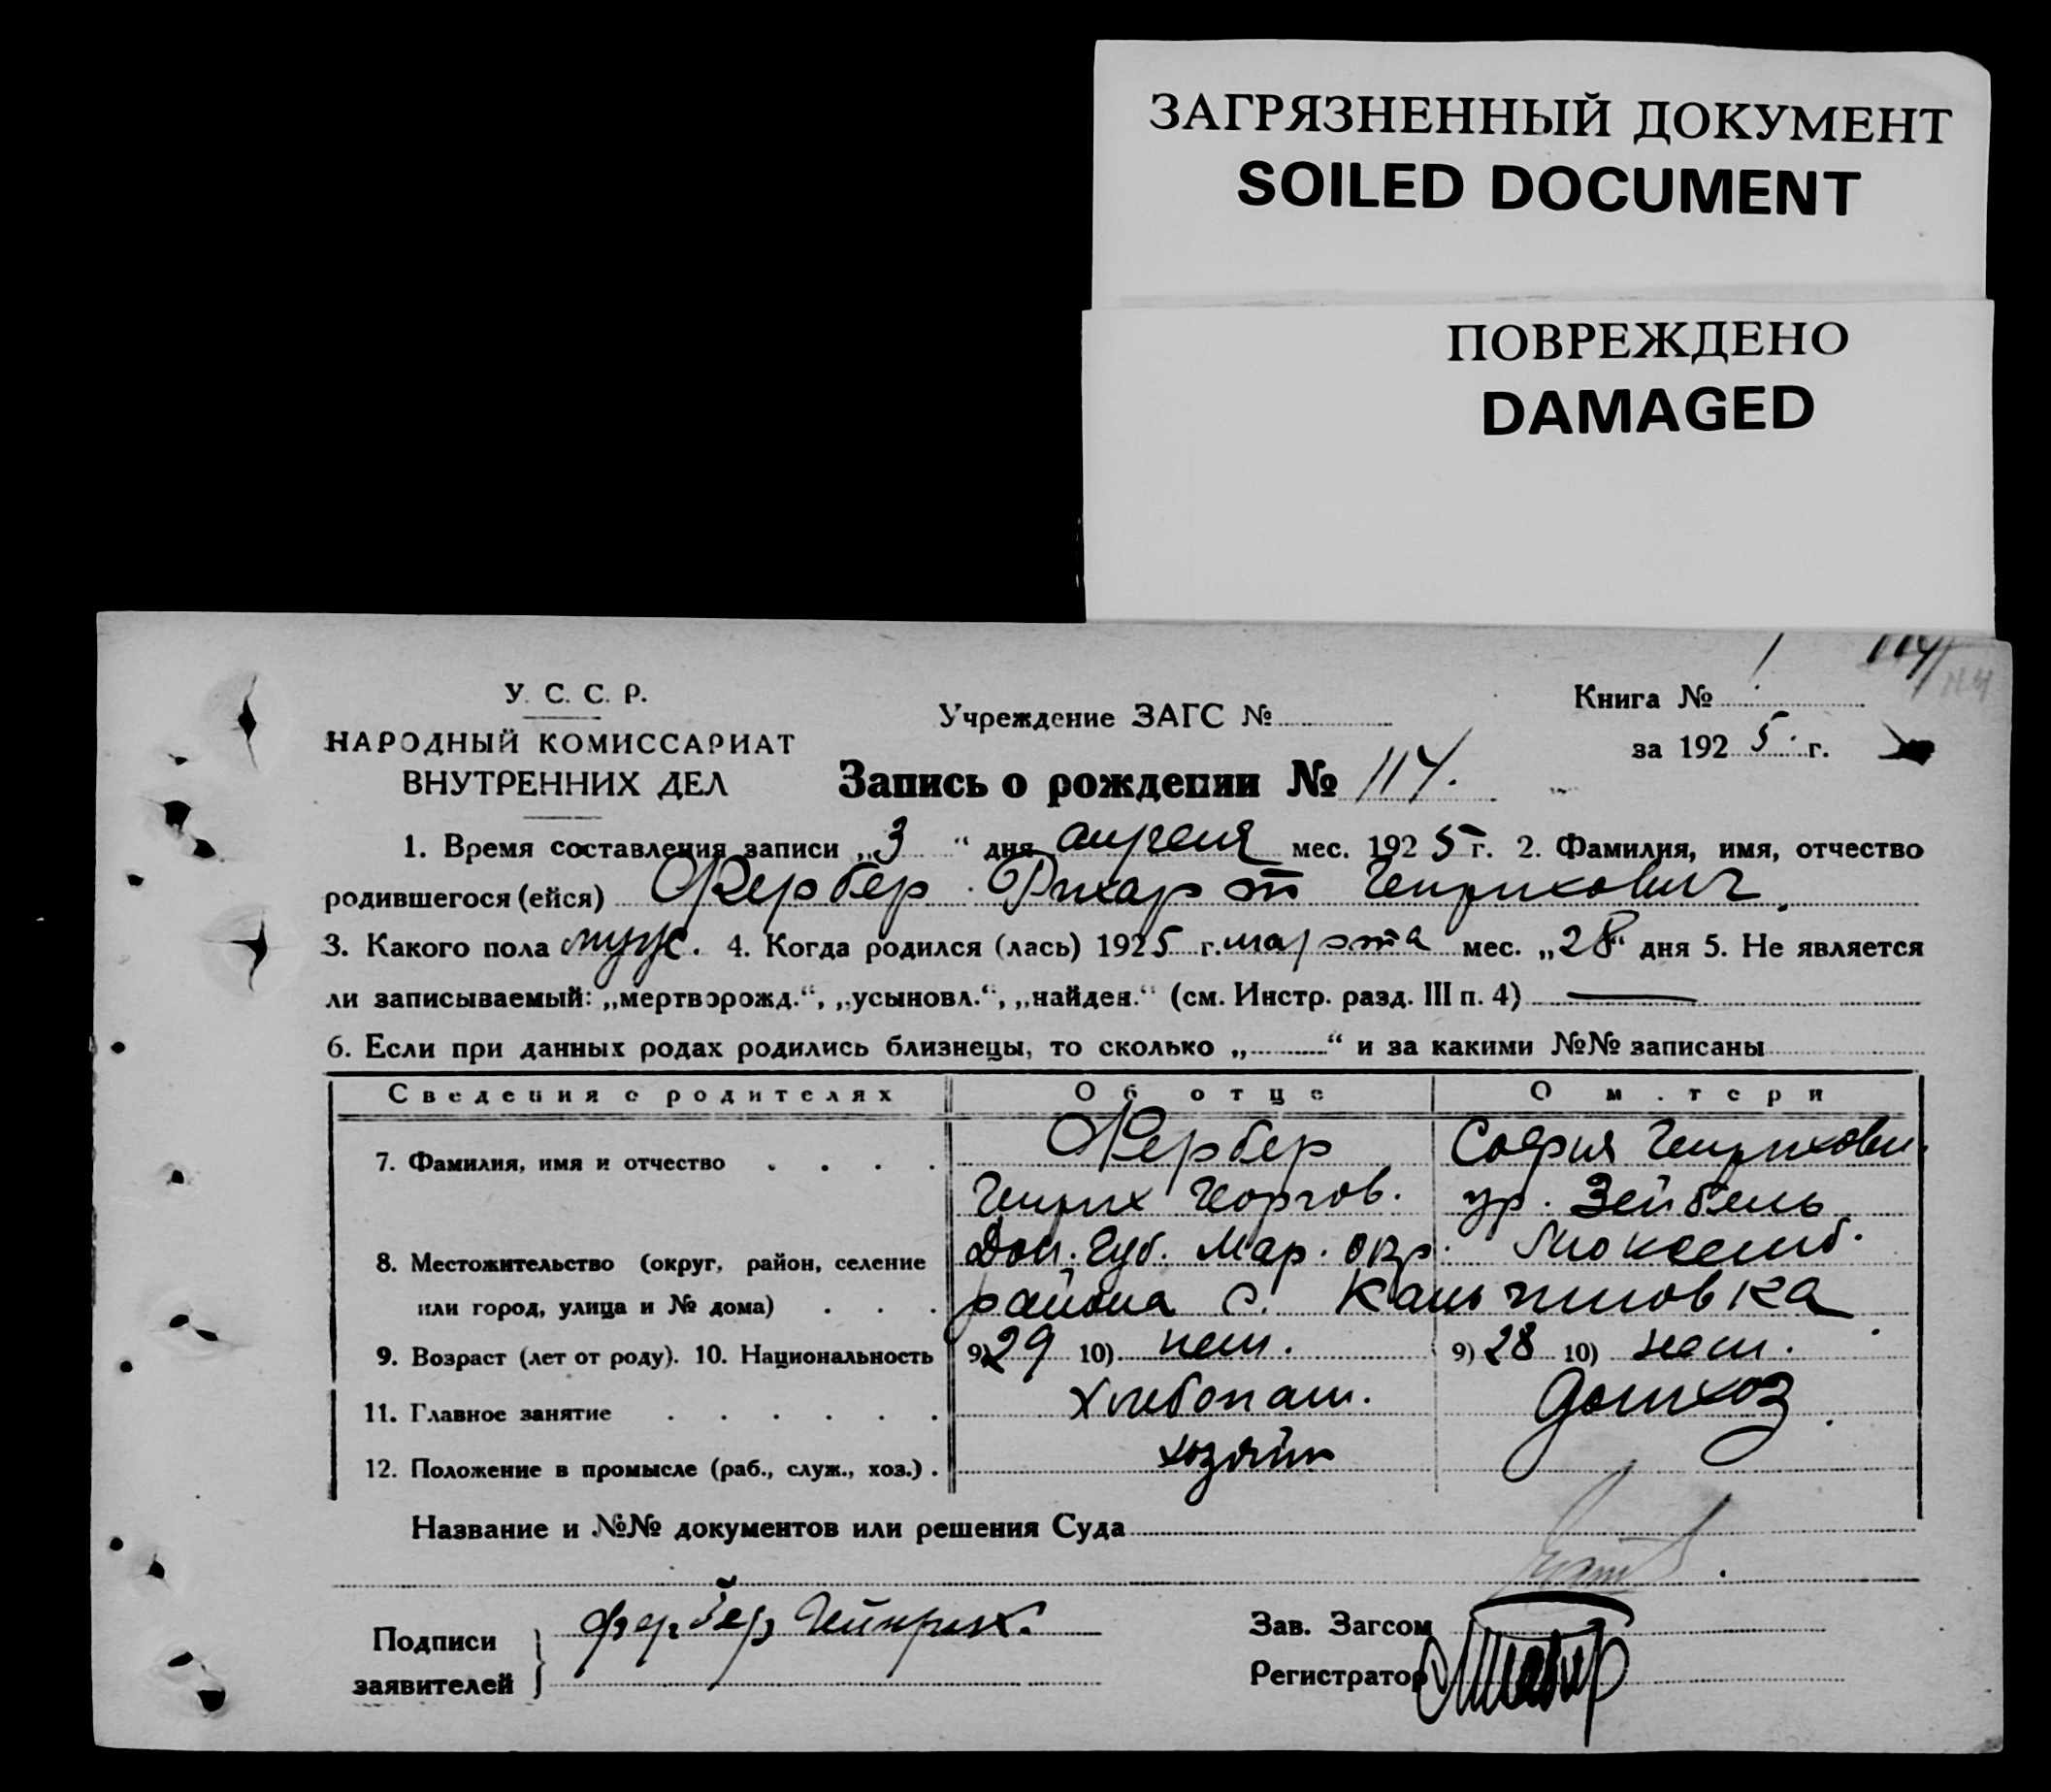 ЗАГРЯЗНЕННЫЙ ДОКУМЕНТ
SOILED DOCUMENT
ПОВРЕЖДЕНО
DAMAGED
114
У. С. С. Р.
НАРОДНЫЙ КОМИССАРИАТ
ВНУТРЕННИХ ДЕЛ
Учреждение ЗАГС №
Книга № 1
за 1925 г.
Запись о рождении № 114.
1. Время составления записи „3“ дня апреля мес. 1925 г. 2. Фамилия, имя, отчество
родившегося (ейся) Фербер Рихарт Генрихович.
3. Какого пола муж. 4. Когда родился (лась) 1925 г. марта мес. „28“ дня 5. Не является
ли записываемый: „мертворожд.“, „усыновл.“, „найден.“ (см. Инстр. разд. III п. 4) —
6. Если при данных родах родились близнецы, то сколько „ “ и за какими №№ записаны
Сведения о родителях Об отце О м.тери
7. Фамилия, имя и отчество Фербер София Генрихови.
Генрих Георгов. ур. Зейбель
8. Местожительство (округ, район, селение Дон. Губ. Мар. окр. Люксемб.
или город, улица и № дома) района с. Кальчиновка
9. Возраст (лет от роду). 10. Национальность 9) 29 10) нем. 9) 28 10) нем.
11. Главное занятие хлебопаш. домхоз.
12. Положение в промысле (раб., служ., хоз.) хозяин
Название и №№ документов или решения Суда
Подписи
заявителей
Фербер Гейнрих.
Зав. Загсом
Регистратор